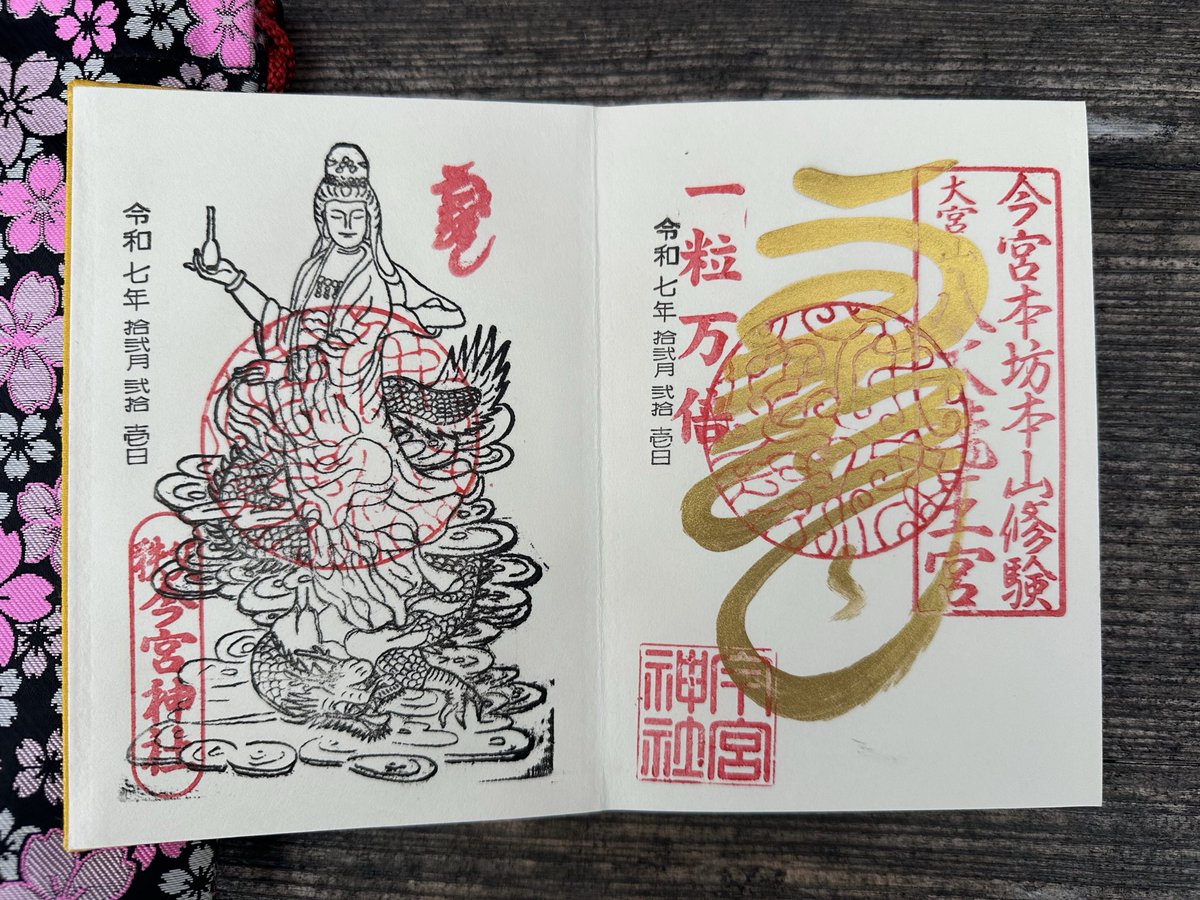 今宮本坊本山修験
大宮山八大龍王宮
一粒万倍
令和七年拾弐月弐拾壱日
今宮神社
令和七年拾弐月弐拾壱日
今宮神社